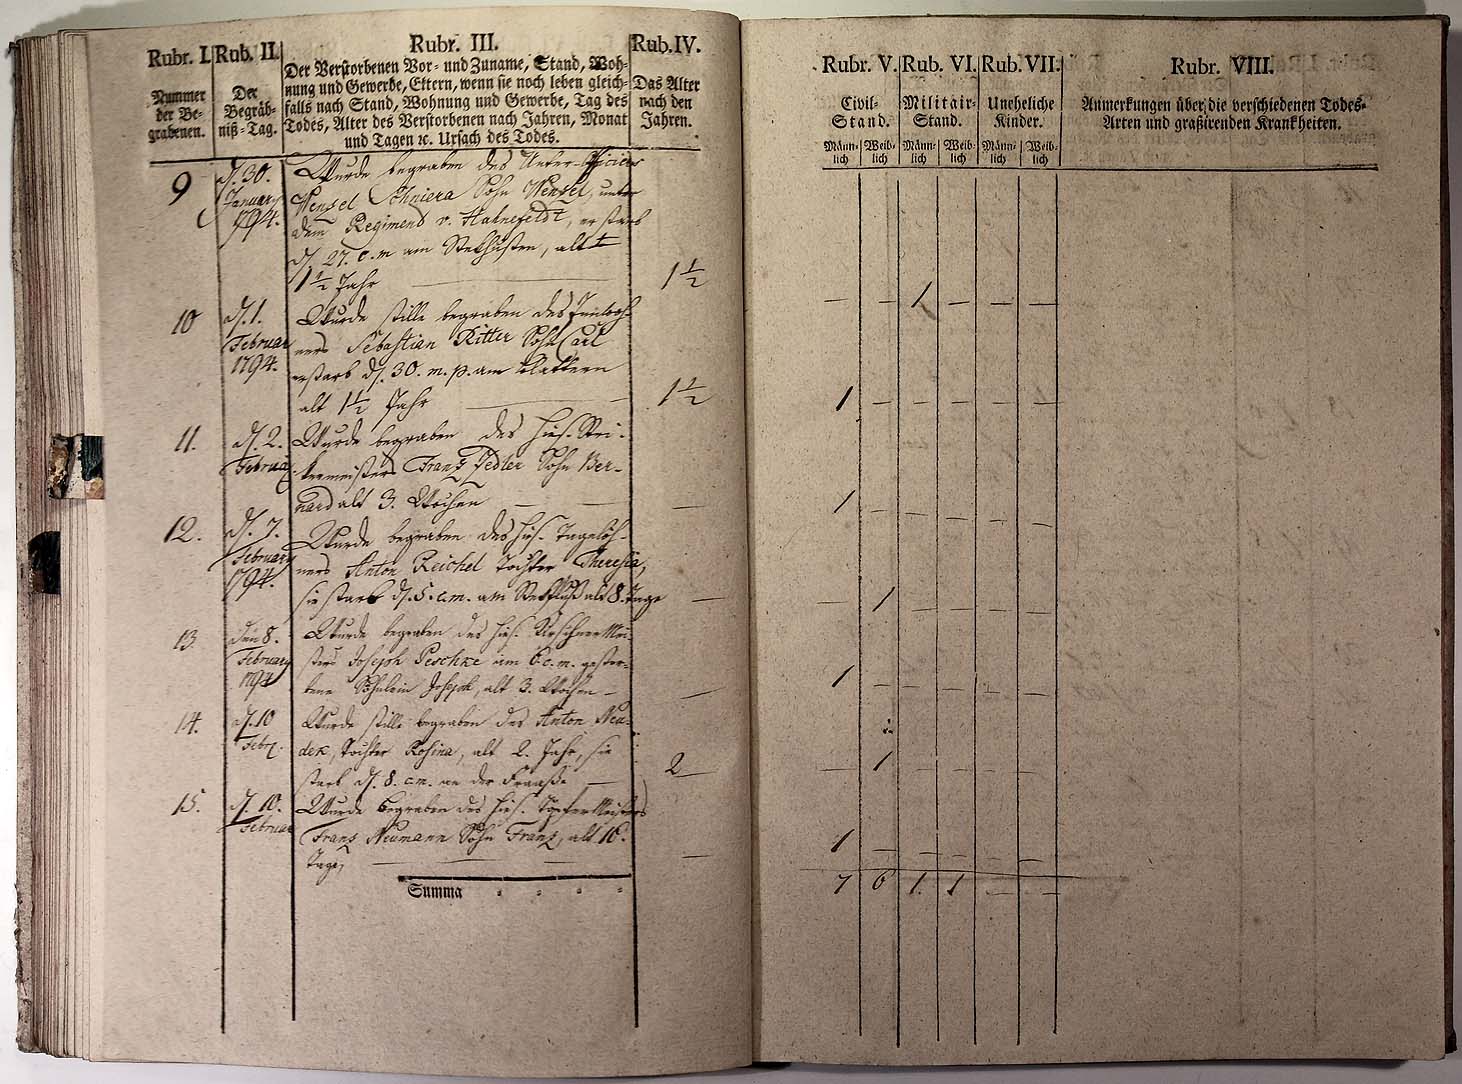 Rubr. I.
Nummer
der Be-
grabenen.
Rub. II.
Der
Begräb-
niß-Tag.
Rubr. III.
Der Verstorbenen Vor- und Zuname, Stand, Woh-
nung und Gewerbe, Eltern, wenn sie noch leben gleich-
falls nach Stand, Wohnung und Gewerbe, Tag des
Todes, Alter des Verstorbenen nach Jahren, Monat
und Tagen ꝛc. Ursach des Todes.
Rub. IV.
Das Alter
nach den
Jahren.
9
d. 30.
Januar
1794.
Wurde begraben des Unter-Officiers
Wenzel Sohn Wenzel, unter
dem Regimend v. Hahnefeldt, er starb
d. 27. c. m am Stekhusten, alt
1½ Jahr
1½
10
d. 1.
Februar
1794.
Wurde stille begraben des Inwoh-
ners Sebastian Ritter Sohn Carl
erstarb d. 30. m. p. am Blattern
alt 1½ Jahr
1½
11.
d. 2.
Februar
Wurde begraben des hies.
Franz Jedler Sohn Ber-
nard alt 3. Wochen
12.
d. 7.
February
1794.
Wurde begraben des hies. Tagelöh-
ners Anton Reichel Tochter Theresia,
sie starb d. 5. c. m. am Stekfluß alt 8. Tage
13.
den 8.
February
1794
Wurde begraben des hies. Kirschner Mei-
sters Joseph Peschke am 6 c. m. gestor-
bene Söhnlein Joseph, alt 3. Wochen
14.
d. 10
Febr.
Wurde stille begraben des Anton Neu-
dek, Tochter Rosina, alt 2. Jahr, sie
starb d. 8. c. m. an der Fraaße
2
15.
d. 10.
Februar
Wurde begraben des hies. Töpfer Meisters
Franz Neumann Sohn Franz, alt 16.
Tage,
Summa
Rubr. V.
Civil-
Stand.
Männ-
lich
Weib-
lich
Rub. VI.
Militair-
Stand.
Männ-
lich
Weib-
lich
Rub. VII.
Uneheliche
Kinder.
Männ-
lich
Weib-
lich
Rubr. VIII.
Anmerkungen über die verschiedenen Todes-
Arten und graßirenden Krankheiten.
— — 1 — — —
1 — — — — —
1 — — — — —
— 1 — — — —
1 — — — — —
— 1 — — — —
1 — — — — —
7 6 1. 1 — —